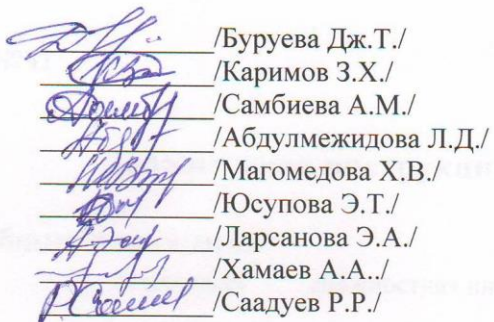 /Буруева Дж.Т./
/Каримов З.Х./
/Самбиева А.М./
/Абдулмежидова Л.Д./
/Магомедова Х.В./
/Юсупова Э.Т./
/Ларсанова Э.А./
/Хамаев А.А../
/Саадуев Р.Р./